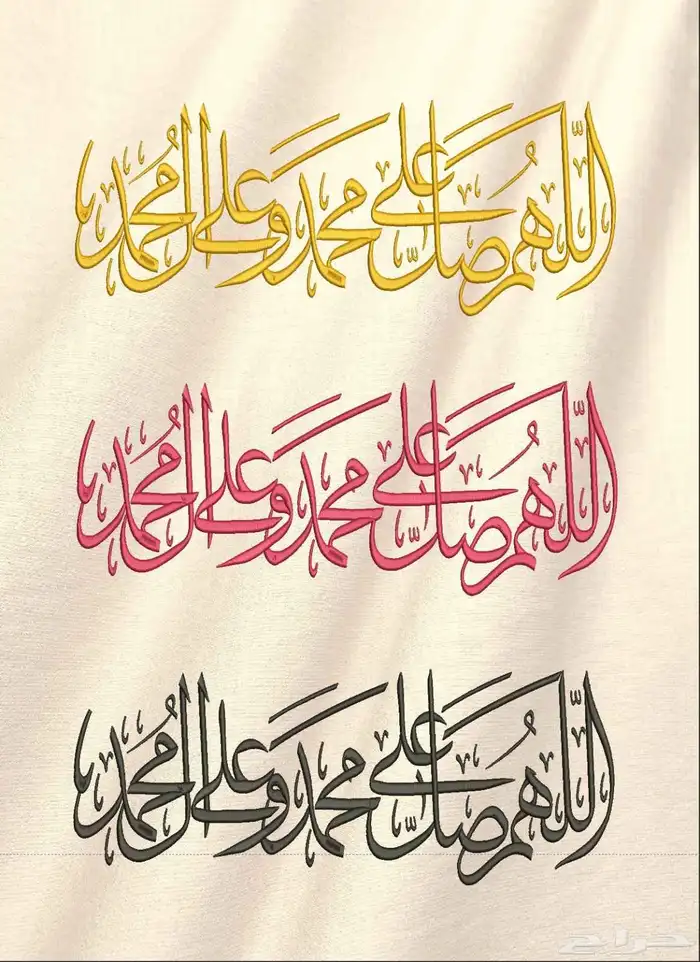 اللهم صل على محمد وعلى ال محمد
اللهم صل على محمد وعلى ال محمد
اللهم صل على محمد وعلى ال محمد
حراج